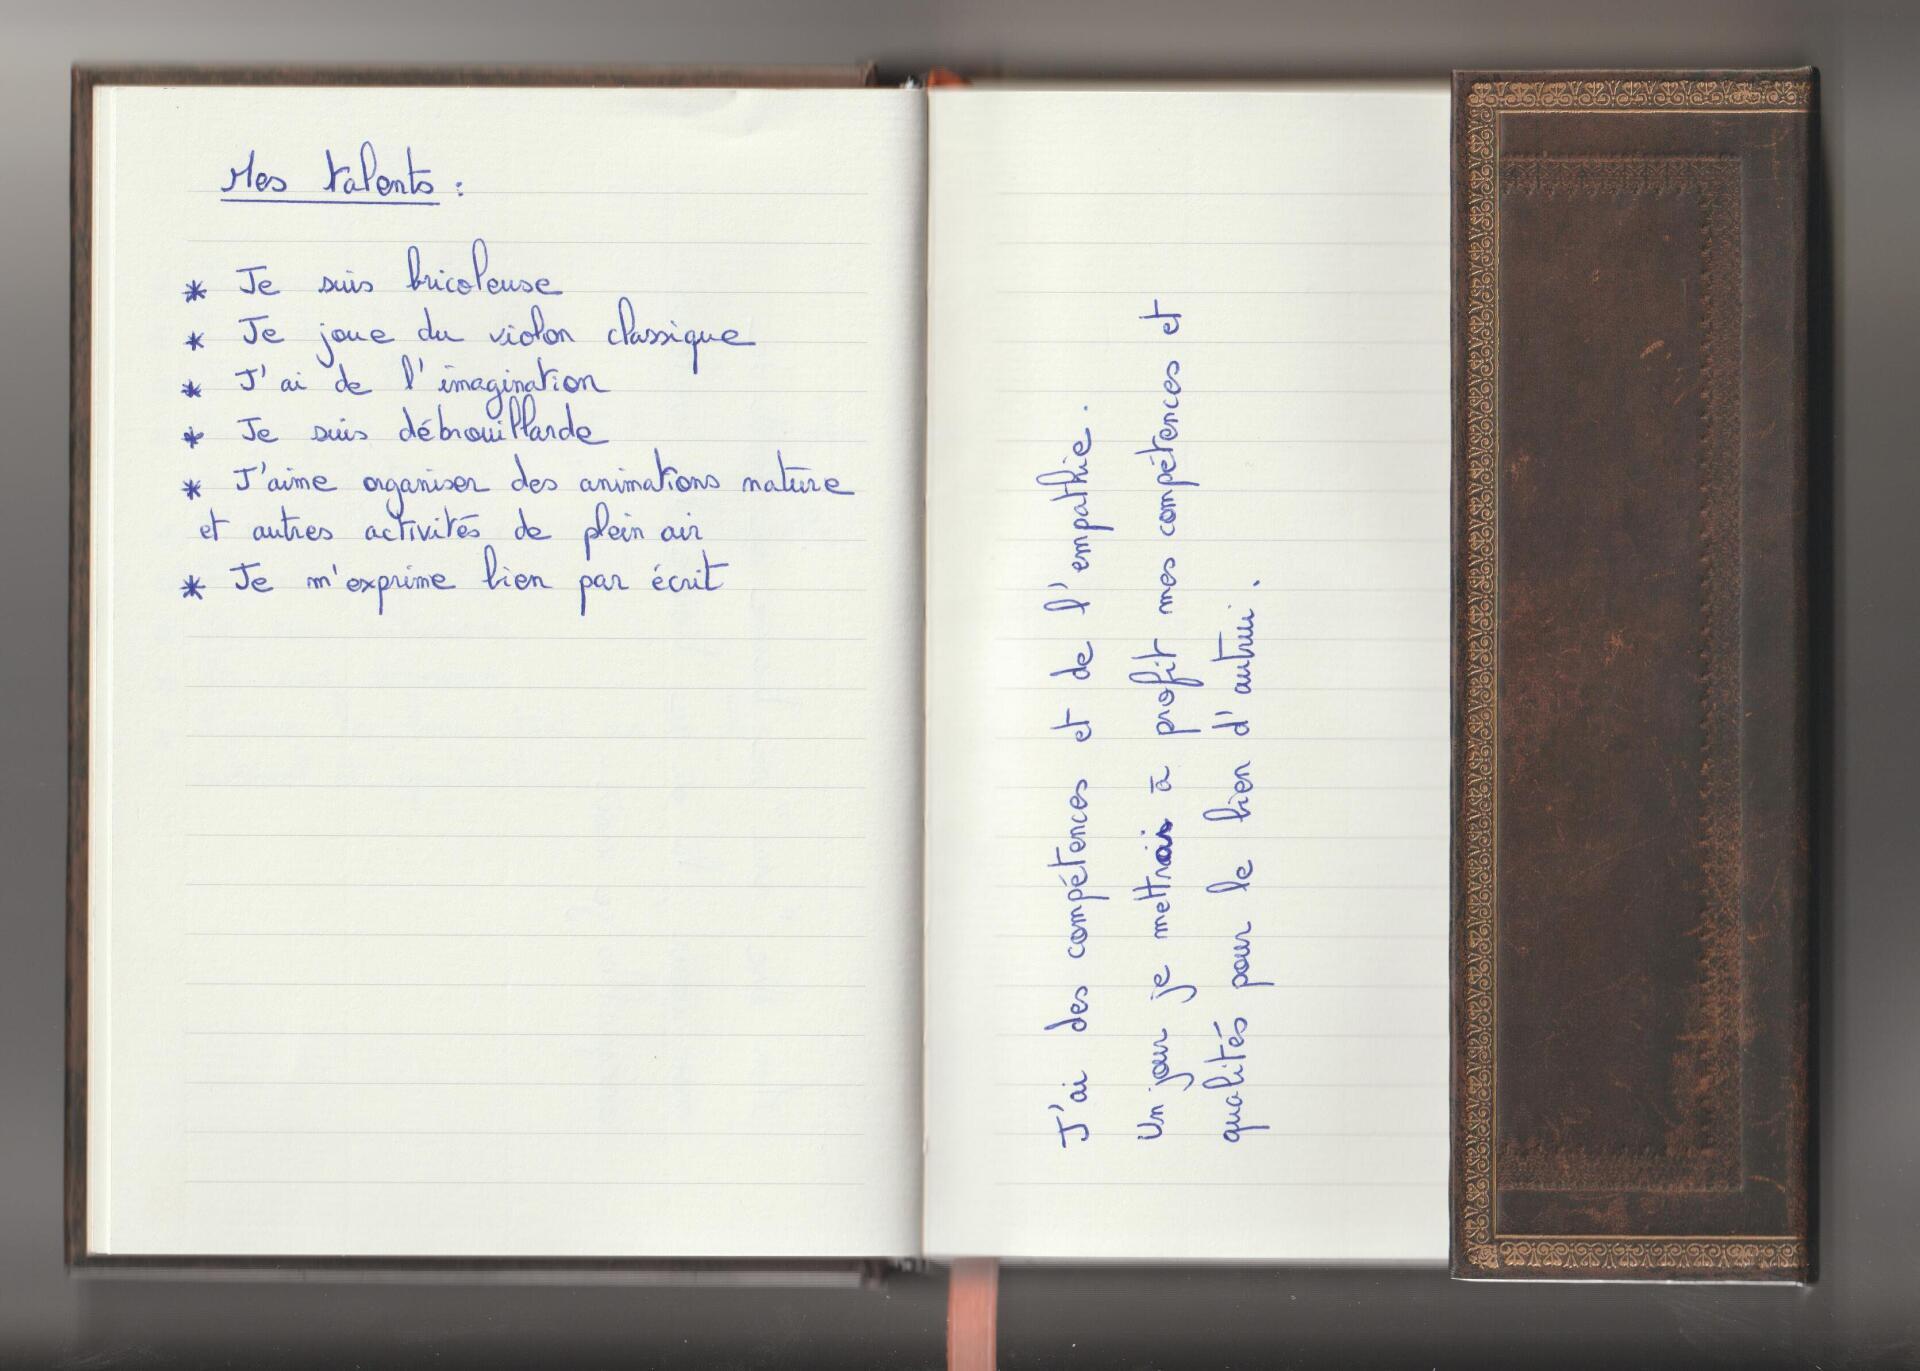 Mes talents :
* Je suis bricoleuse
* Je joue du violon classique
* J'ai de l'imagination
* Je suis débrouillarde
* J'aime organiser des animations nature
et autres activités de plein air
* Je m'exprime bien par écrit
J'ai des compétences et de l'empathie.
Un jour je mettrais à profit mes compétences et
qualités pour le bien d'autrui.